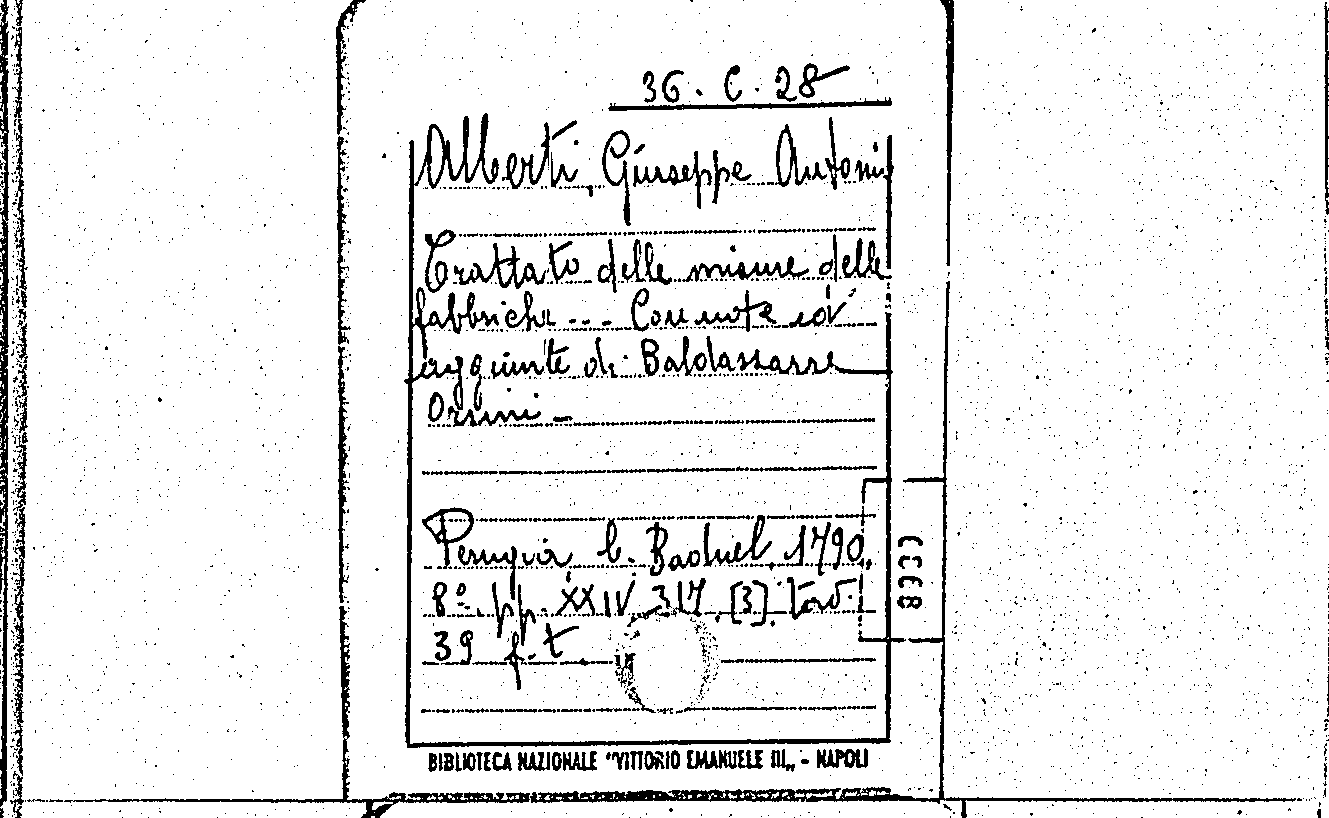 36. C. 28
Alberti, Giuseppe Antonio
Trattato delle misure delle
fabbriche... Con note ed
aggiunte di Baldassarre
Orsini -
Perugia, C. Baduel, 1790,
8º. pp. XXIV 317 [3]. Tav.
39 f.t.
CC68
BIBLIOTECA NAZIONALE "VITTORIO EMANUELE III„ - NAPOLI